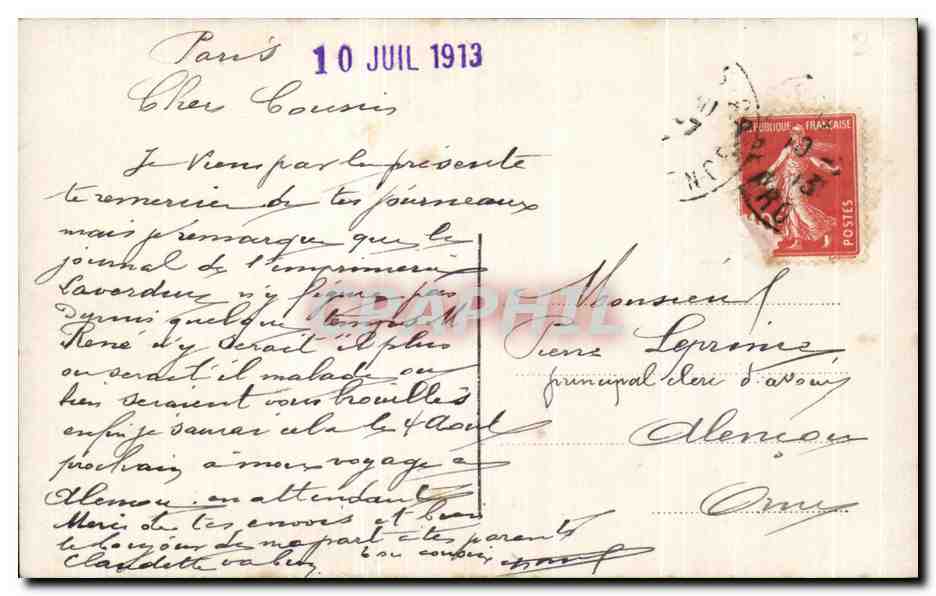 Paris
10 JUIL 1913
Cher Cousin
Je viens par la présente
te remercier de tes journeaux
mais je remarque que le
journal de l'imprimerie
n'y figure pas
Depuis quelque temps M
René n'y serait il plus
ou serait il malade ou
bien seraient vous brouillés
enfin je saurai cela le 4 Août
prochain à mon voyage a
Alencon en attendant
Merci de tes envois et bien
le bonjour de ma part a tes parents
Claudette va bien
ton cousin
REPUBLIQUE FRANÇAISE
POSTES
Monsieur
Pierre Leprince
principal clerc d'avoué
Alençon
Orne
CPAPHIL